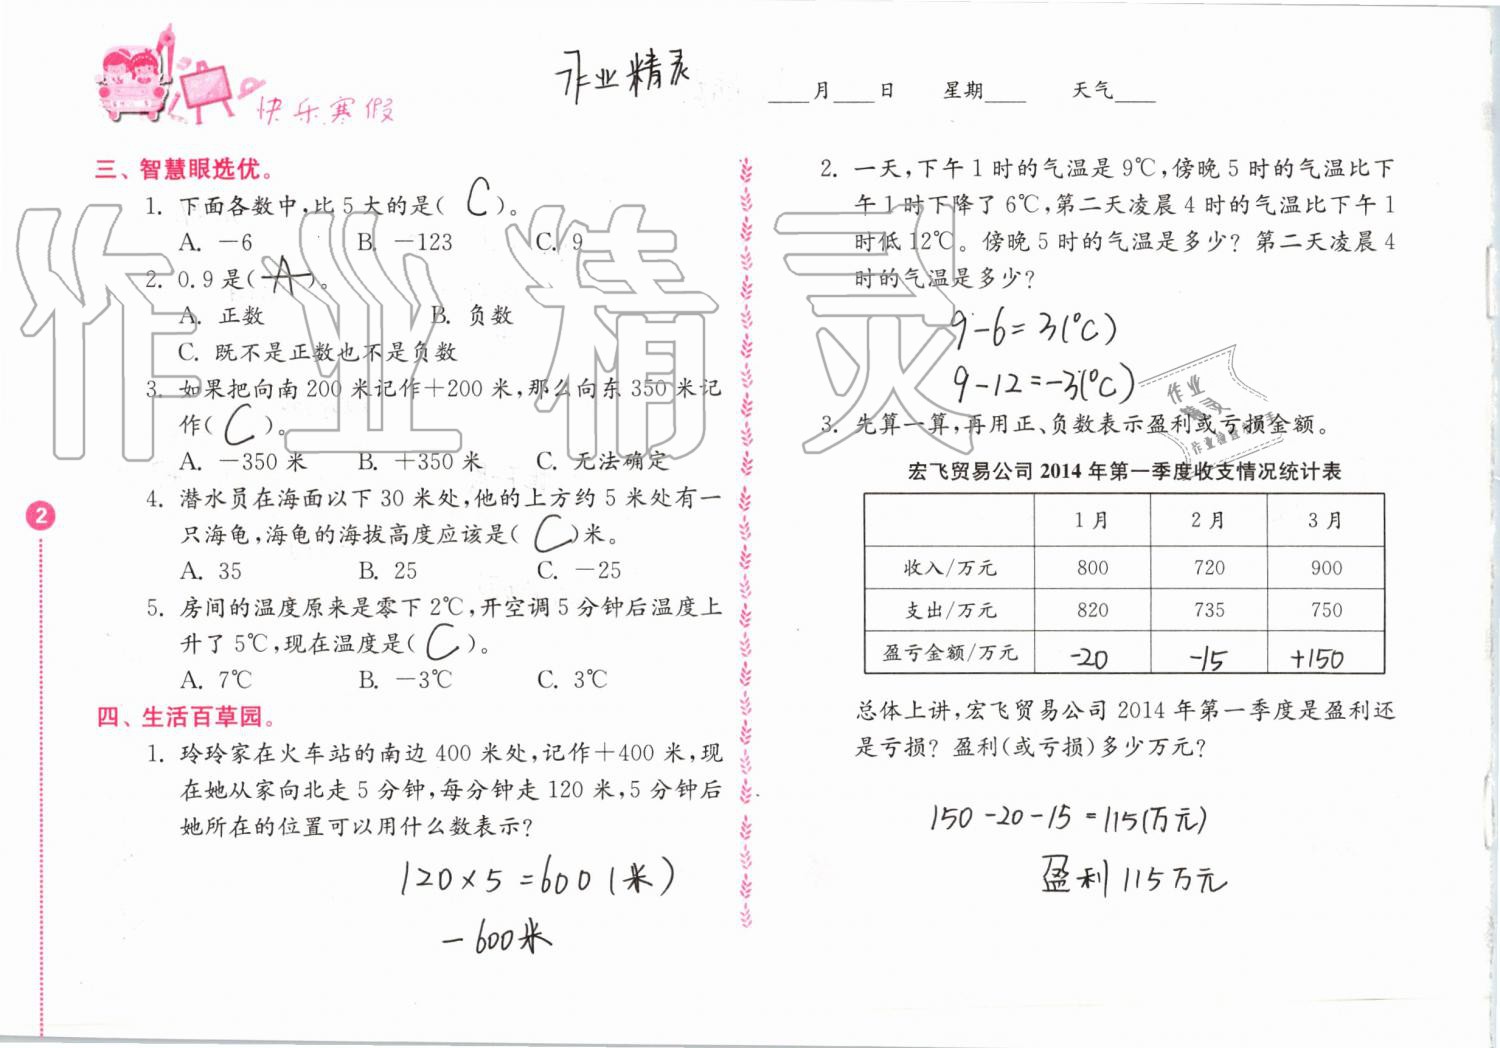 作业精灵
快乐寒假
____月____日 星期____ 天气____
三、智慧眼选优。
1. 下面各数中,比5大的是( C )。
A. －6 B. －123 C. 9
2. 0.9是( A )。
A. 正数 B. 负数
C. 既不是正数也不是负数
3. 如果把向南200米记作＋200米,那么向东350米记
作( C )。
A. －350米 B. ＋350米 C. 无法确定
4. 潜水员在海面以下30米处,他的上方约5米处有一
只海龟,海龟的海拔高度应该是( C )米。
A. 35 B. 25 C. －25
5. 房间的温度原来是零下2℃,开空调5分钟后温度上
升了5℃,现在温度是( C )。
A. 7℃ B. －3℃ C. 3℃
四、生活百草园。
1. 玲玲家在火车站的南边400米处,记作＋400米,现
在她从家向北走5分钟,每分钟走120米,5分钟后
她所在的位置可以用什么数表示?
120×5=600(米)
－600米
2
2. 一天,下午1时的气温是9℃,傍晚5时的气温比下
午1时下降了6℃,第二天凌晨4时的气温比下午1
时低12℃。傍晚5时的气温是多少? 第二天凌晨4
时的气温是多少?
9-6=3(℃)
9-12=-3(℃)
3. 先算一算,再用正、负数表示盈利或亏损金额。
宏飞贸易公司2014年第一季度收支情况统计表
1月 2月 3月
收入/万元 800 720 900
支出/万元 820 735 750
盈亏金额/万元 -20 -15 +150
总体上讲,宏飞贸易公司2014年第一季度是盈利还
是亏损? 盈利(或亏损)多少万元?
150-20-15=115(万元)
盈利115万元
作业精灵
作业
精灵